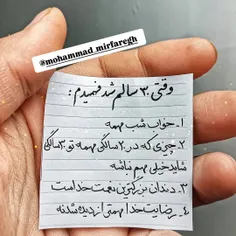 @mohammad_mirfaregh
وقتی ۳۰ سالم شد فهمیدم:
۱. خواب شب مهمه
۲. چیزی که در ۲۰ سالگی مهمه تو ۳۰ سالگی
شاید خیلی مهم نباشه
۳. دندان بزرگترین نعمت خداست
۴. رضایت خدا مهمتر از دیده شدنه